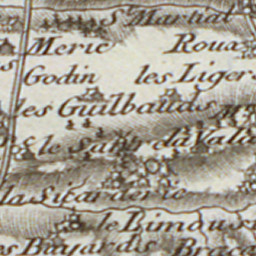 St. Martial
Meric Roux
Godin les Ligers
les Guilbauds
le Saut du Vala
la Sicarderie
le Bimous
Buyards Braca